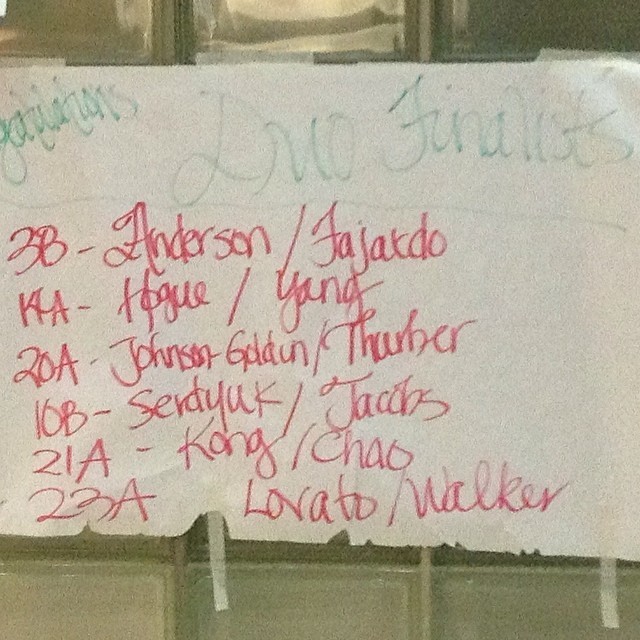 Duo Finalists
3B - Anderson / Fajardo
14A - Hogue / Yang
20A - Johnson-Goldin / Thurber
10B - Serdyuk / Jacobs
21A - Kong / Chao
23A Lovato / Walker